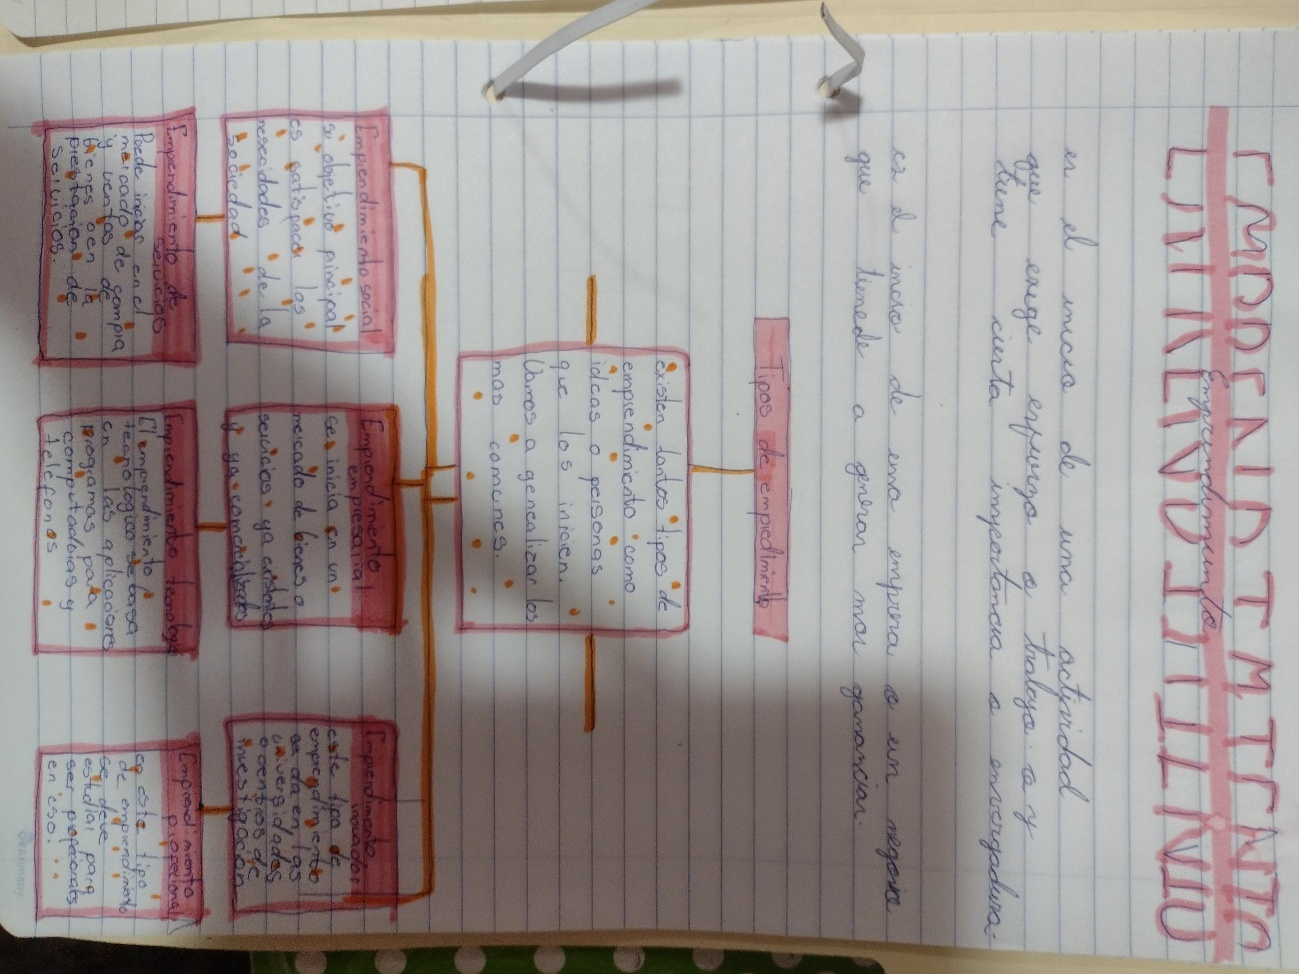 EMPRENDIMIENTO
Emprendimiento
es el inicio de una actividad
que exige esfuerzo o trabajo. ta y
tiene cierta importancia o envergadura.
es el incio de ema empresa o un negocio
que tienede a generar mas ganancias.
Tipos de empredimiento
existen tantos tipos de
emprendimiento como
ideas o personas
que los inicien.
Vamos a genealizar los
mas comunes.
Emprendimiento social
si objetivo principal
es satisfacer las
nesecidades de la
sociedad
Emprendimiento
empresarial
se inicia en un
mercado de bienes o
servicios ya existentes
y ya comercializados
Emprendimiento
inovador
este tipo de
emprendimiento
se da en las
universidades
o centros de
investigacion
Emprendimiento de
servicios
Puede iniciar en el
mercado de compra
y ventas de
bienes o en la
prestacion de
servicios.
Emprendimiento tecnologo
El emprendimiento
tecnologico se basa
en las aplicaciones
programas para
computadoras y
telefonos
Emprendimiento
profecional
en este tipo
de emprendimiento
se deve
estudiar para
ser profecionales
en eso.